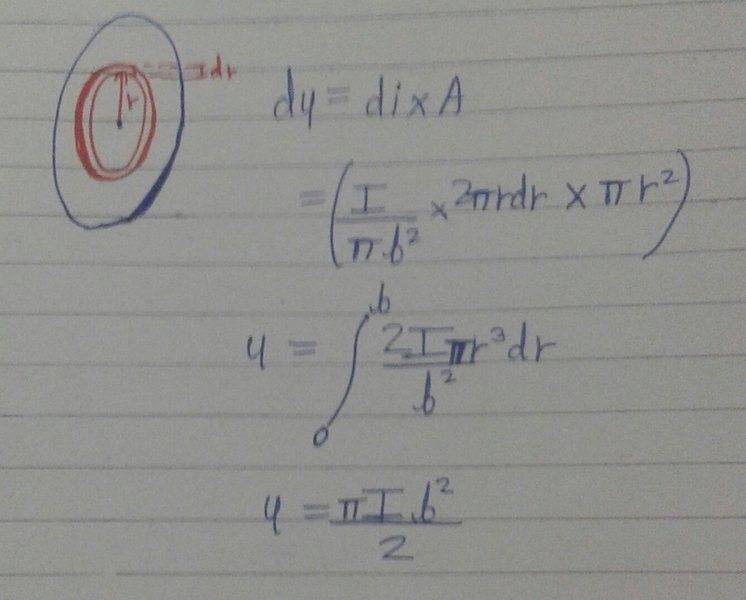 dr
r
dy = di x A
= (I/πb² x 2πrdr x πr²)
y = ∫₀ᵇ 2Iπr³dr/b²
y = πIb²/2